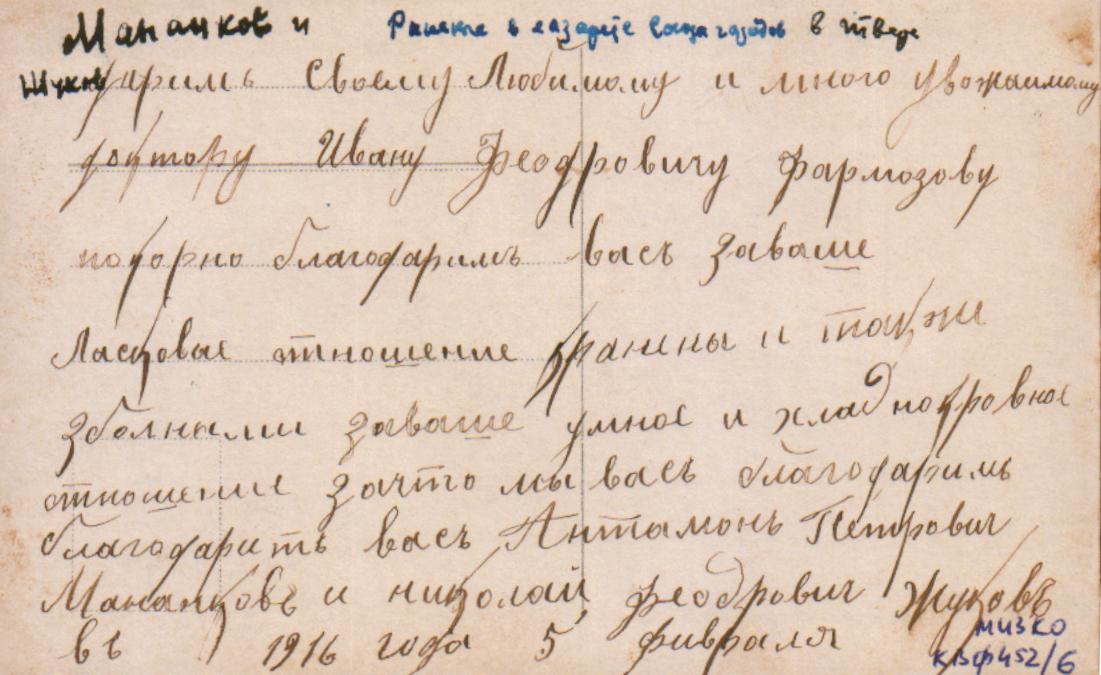 Мананков и Раненые в лазарете Союза городов в Твери
Жуков
Даримъ Своему Любимому и много Уважаимому
доктору Ивану Феодровичу Фармозову
покорно благодаримъ васъ заваше
Ласковые отношение кранины и также
зболными заваше умное и хладнокровное
отношение зачто мы васъ благодаримъ
благодаритъ васъ Антамонъ Петрович
Мананковъ и николай феодрович Жуковъ
въ 1916 года 5 февраля
МИЗКО
КВФ452/6